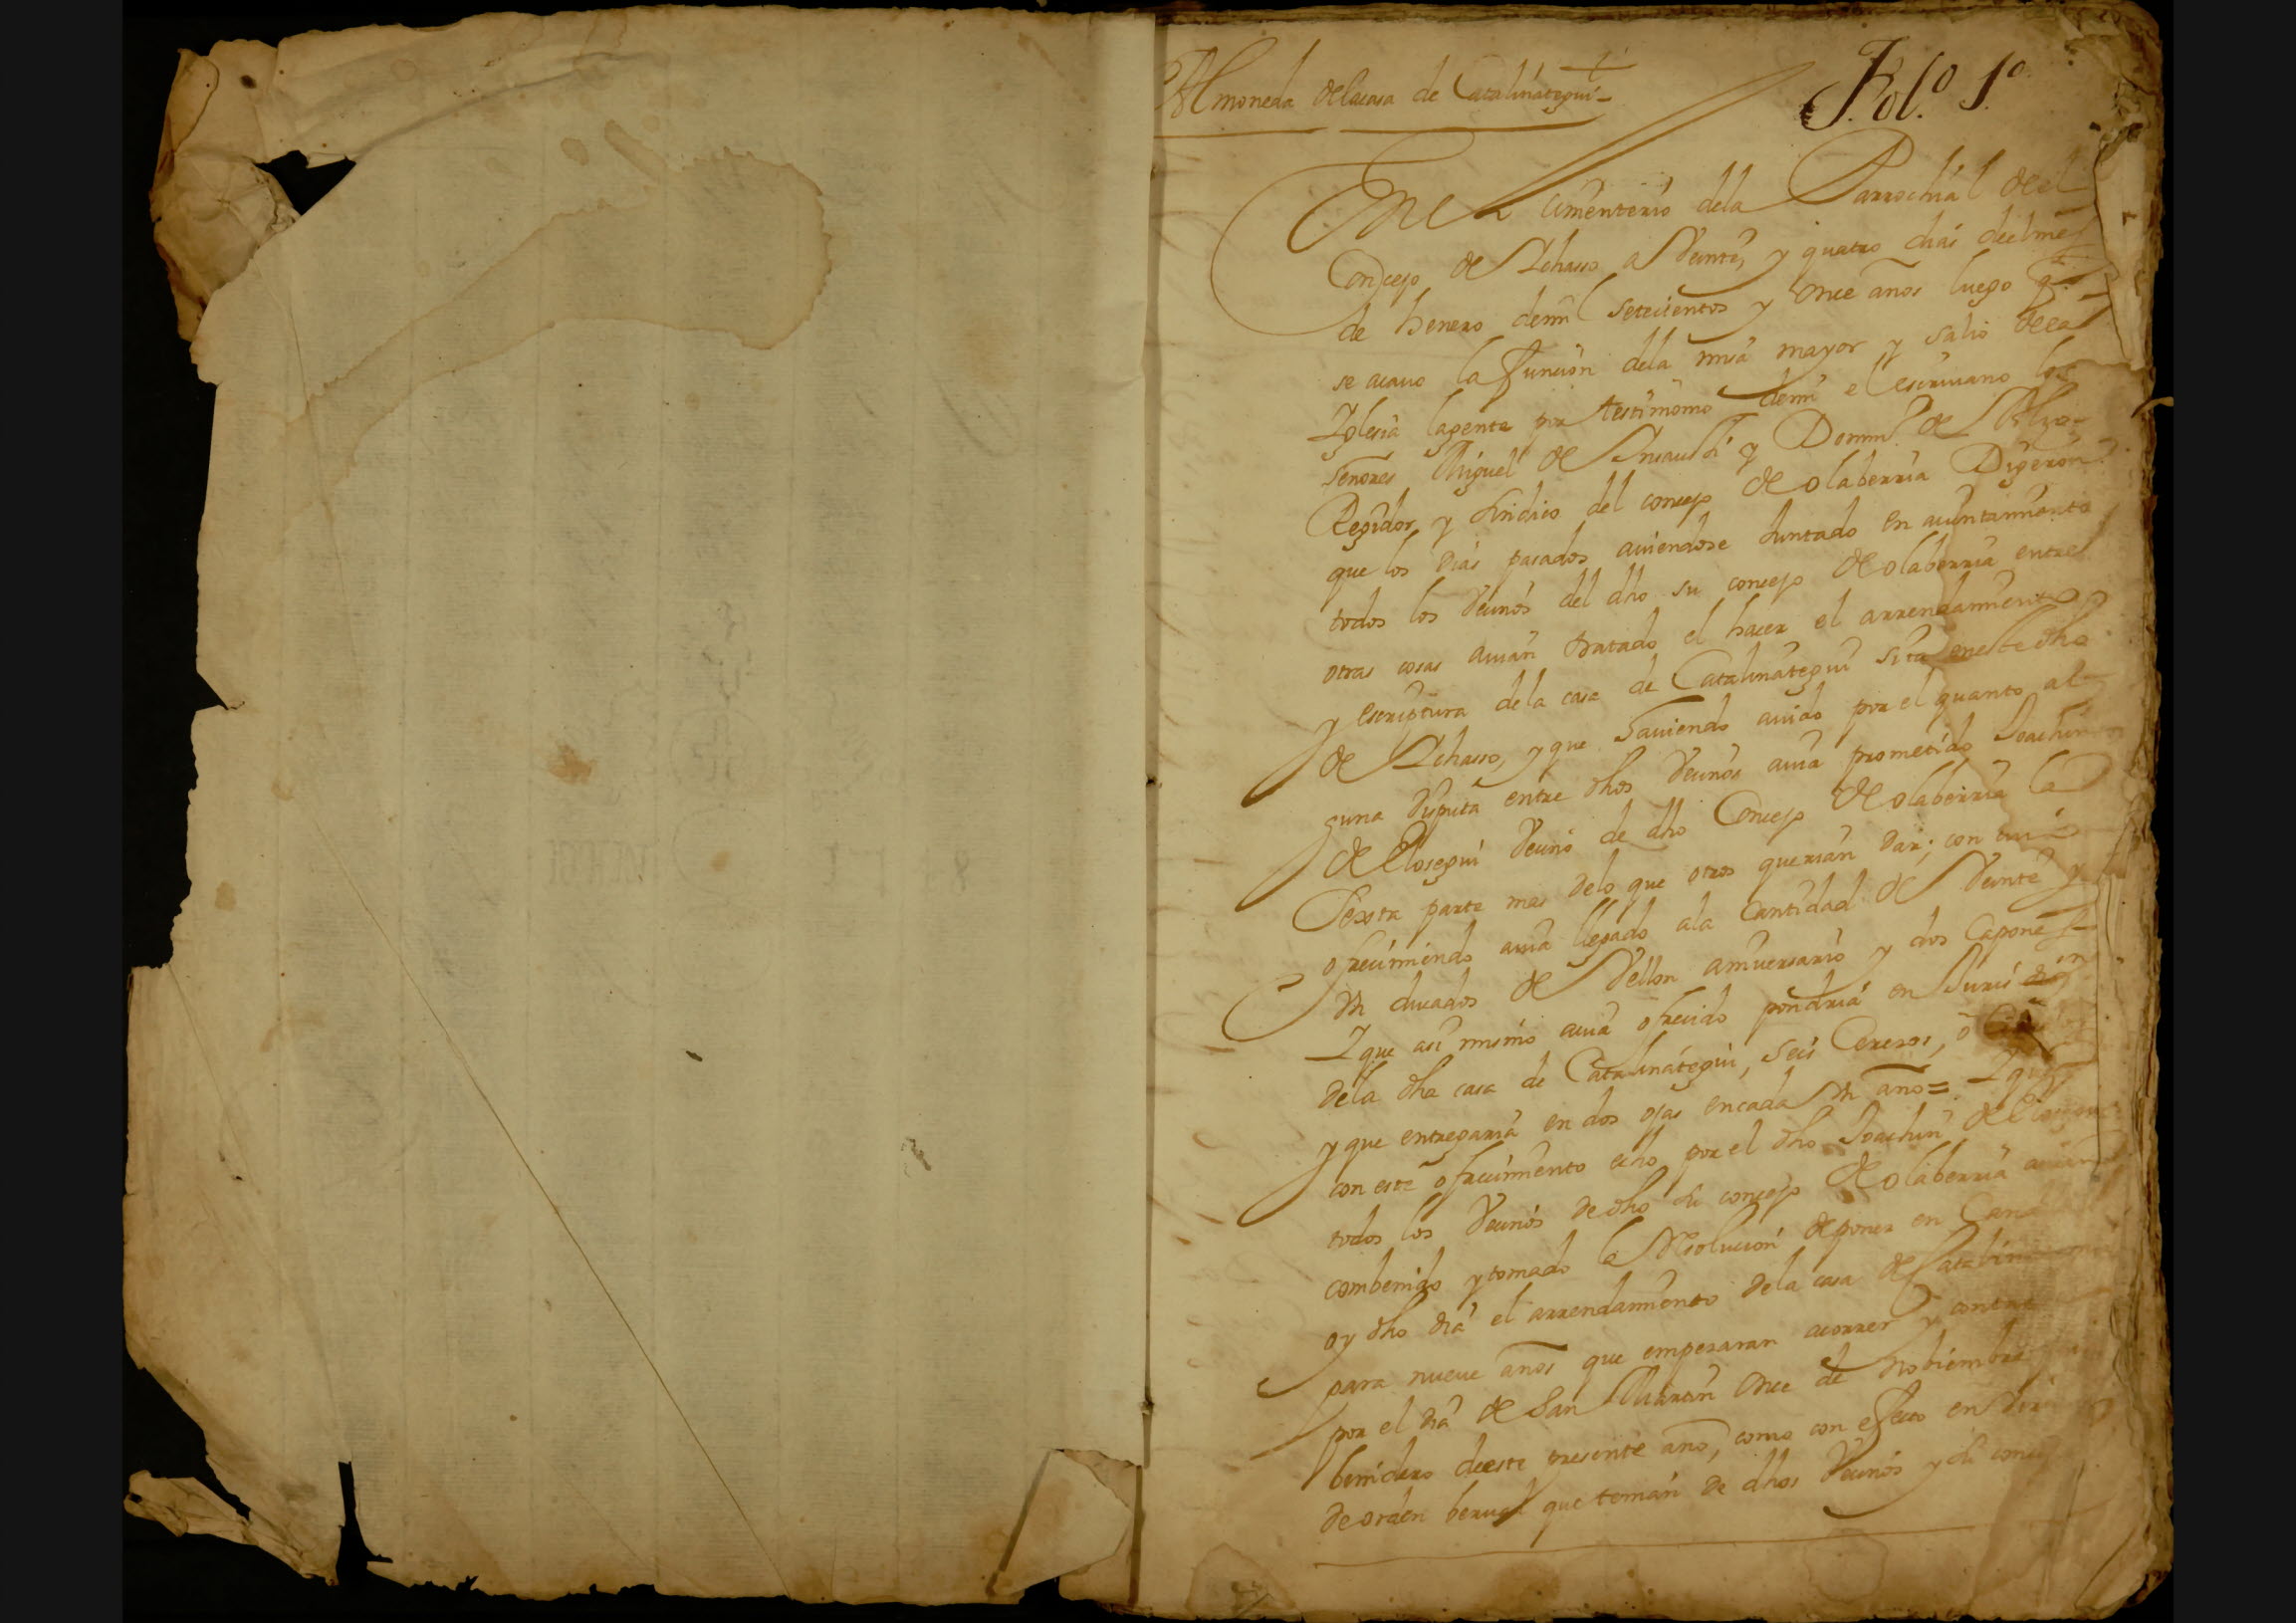 Almoneda de la casa de Catalinategui
Fol.º 1º
En el cimenterio dela Parrochial de el
Concejo de Ichasso a Veinte, y quatro dias del mes
de henero de mil setecientos y once años luego q.
se acavo la funcion dela misa mayor y salio dela
Iglesia la gente por testimonio demi el escrivano los
Señores Miguel de Insausti y Domin.º de
Regidor y sindico del concejo de olaberria Digeron
que los dias pasados aviendose Juntado en aiuntamiento
todos los Vecinos del dho su concejo de olaberria entre
otras cosas avian tratado el hacer el arrendamiento
y escriptura dela casa de Catalinategui sita en este dho
de Ichasso, y que haviendo avido por el quanto al-
guna disputa entre dhos Vecinos avia prometido Joachin
de Elosegui Vecino de dho Concejo de olaberria la
Sexta parte mas delo que otros querian dar; con cuio
ofrecimiendo avia llegado ala Cantidad de Veinte y
un ducados de Vellon anniversario y dos Capones
Y que asi mismo avia ofrecido pondria en Juris
dela dha casa de Catalinategui, seis Cerezos, o
y que entregaria en dos ojas en cada un año = Y que
con este ofrecimiento echo por el dho Joachin de Elosegui
todos los Vecinos de dho su concejo de olaberria avian
combenido y tomado la Resolucion de poner en
oy dho dia el arrendamiento dela casa de
para nueve años que empezaran acorrer y
por el dia de San Martin Once de Nobiembre
benidero de este presente año, como con efecto en
de orden berval que tenian de dhos Vecinos y su